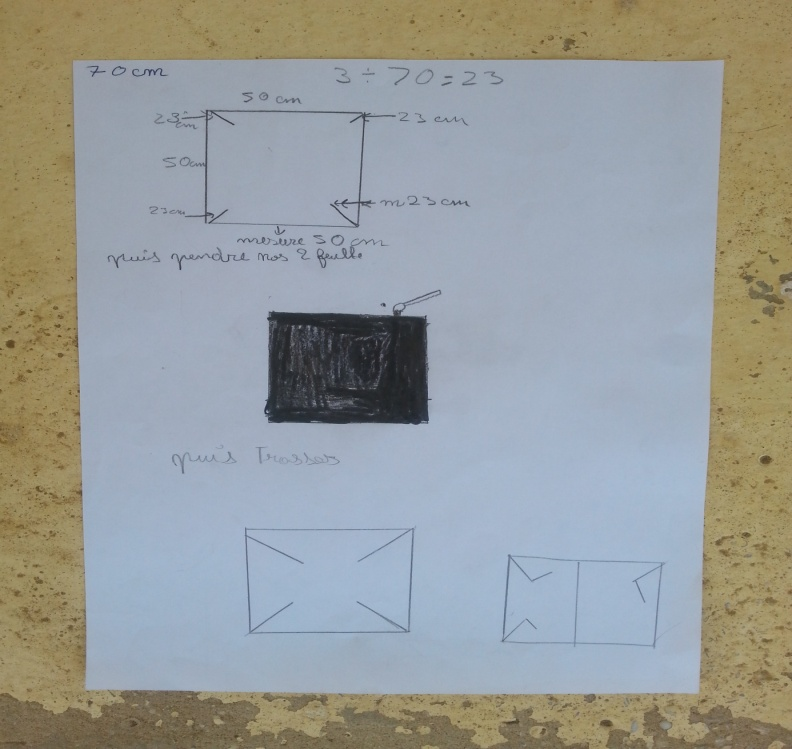 70cm
3 ÷ 70 = 23
50 cm
23 cm
23 cm
50cm
23 cm
m 23 cm
mesure 50 cm
puis pendre nos 2 feuille
puis Trasser